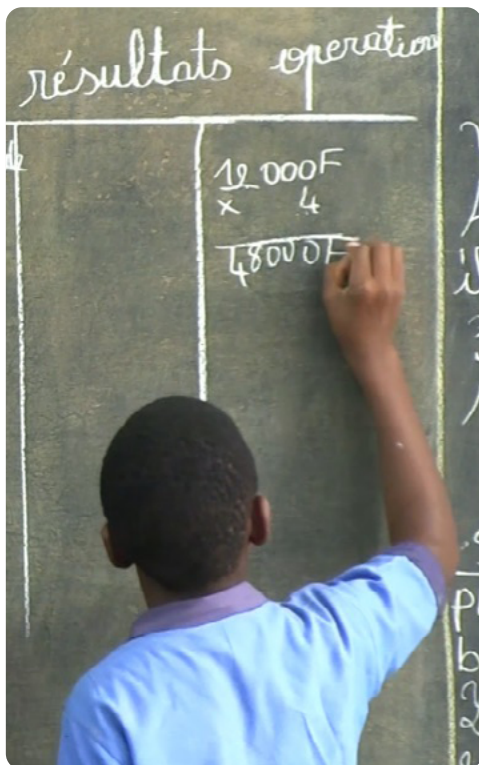 résultats operation
12000F
x 4
48000F